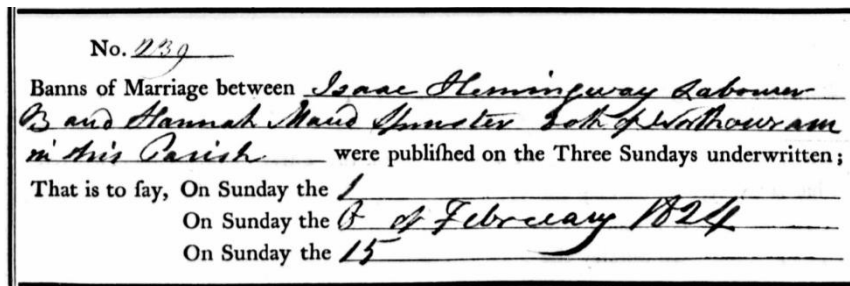 No. 239
Banns of Marriage between Isaac Hemingway Labourer
B and Hannah Maud Spinster both of Northowram
in this Parish were publiſhed on the Three Sundays underwritten;
That is to ſay, On Sunday the 1
On Sunday the 8 of February 1824
On Sunday the 15